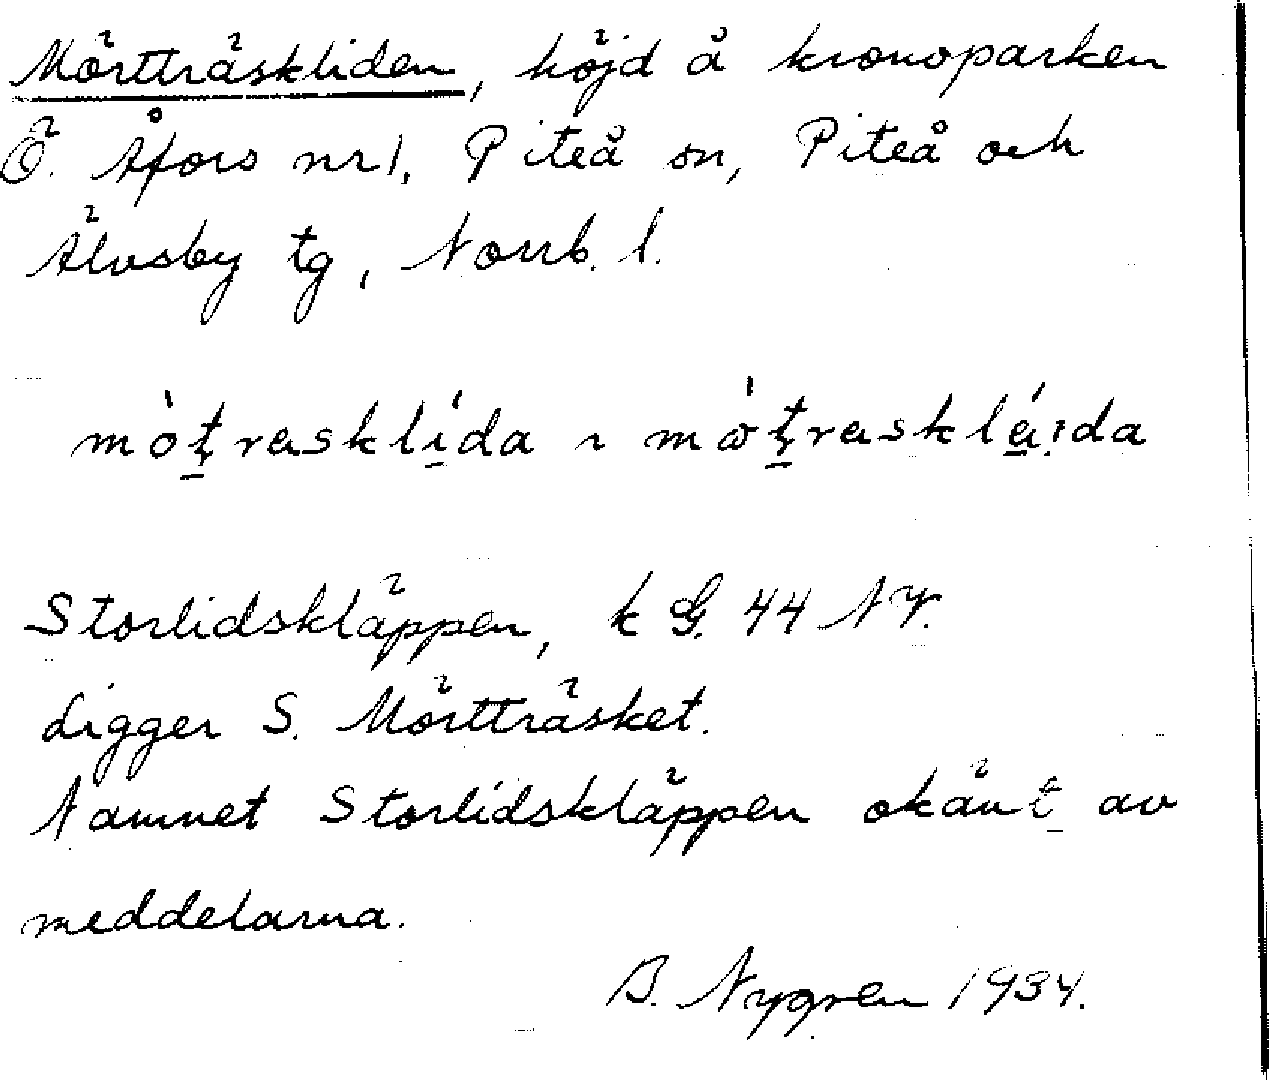 Mörtträskliden, höjd å kronoparken
Ö. Åfors nr 1, Piteå sn, Piteå och
Älvsby tg, Norrb. l.
mòt̤rasklída ~ mὼt̤rasklá̤ida
Storlidskläppen, k G. 44 NV.
Ligger S. Mörtträsket.
Namnet Storlidskläppen okänt av
meddelarna.
B. Nygren 1934.